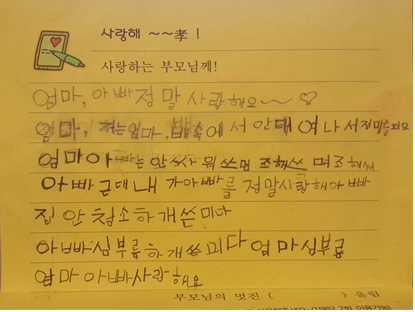 사랑해 ~~孝!
사랑하는 부모님께!
엄마, 아빠 정말 사랑해요~ ♡
엄마, 저는 엄마, 배속에서 안태여나서
엄마아빠는 안싸워쓰면 조해쓰면조해
아빠 근대 내가아빠를 정말사랑해아빠
집안청소하개씀미다
아빠심부름하개씀미다 엄마심부름
엄마 아빠사랑해요
부모님의 멋진 ( ) 올림